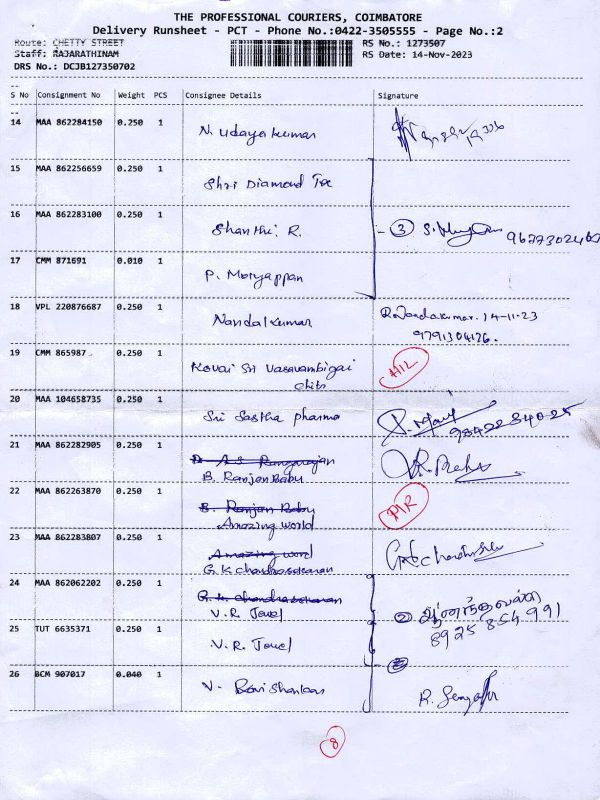 THE PROFESSIONAL COURIERS, COIMBATORE
Delivery Runsheet - PCT - Phone No.:0422-3505555 - Page No.:2
Route: CHETTY STREET
RS No.: 1273507
Staff: RAJARATHINAM
RS Date: 14-Nov-2023
DRS No.: DCJB127350702
S No Consignment No Weight PCS Consignee Details Signature
14 MAA 862284150 0.250 1 N. Udaya kumar
15 MAA 862256659 0.250 1 Shri Diamond
16 MAA 862283100 0.250 1 Shanthi. R. - 3
17 CMM 871691 0.010 1 P. Moryappan
18 VPL 220876687 0.250 1 Nandakumar R. Nandakumar. 14-11-23
9791304126.
19 CMM 865987 0.250 1 Kovai Sri Vasavambigai
chits
20 MAA 104658735 0.250 1 Sri Sastha pharma 9842234025
21 MAA 862282905 0.250 1 Rangarajan
B. Ranjan Babu
22 MAA 862263870 0.250 1 B. Ranjan Baby
Amazing world
23 MAA 862283807 0.250 1 Amazing word
G.K chandrasekaran
24 MAA 862062202 0.250 1 G.K chandrasekaran
V.R. Jewel
2
8925 854 991
25 TUT 6635371 0.250 1 V.R. Jewel
26 BCM 907017 0.040 1 V. Ravi Shankar
8